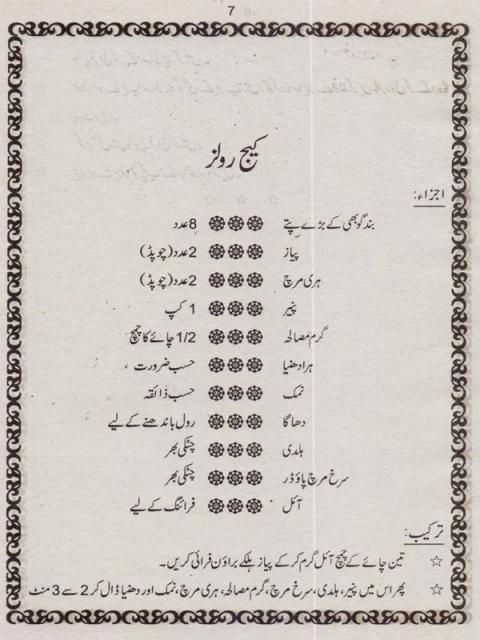 7
کیبج رولز
اجزاء:
بند گوبھی کے بڑے پتے 8 عدد
پیاز 2 عدد (چوپڈ)
ہری مرچ 2 عدد (چوپڈ)
پنیر 1 کپ
گرم مصالحہ 1/2 چائے کا چمچ
ہرا دھنیا حسب ضرورت
نمک حسب ذائقہ
دھاگا رول باندھنے کے لیے
ہلدی چٹکی بھر
سرخ مرچ پاؤڈر چٹکی بھر
آئل فرائنگ کے لیے
ترکیب:
☆ تین چائے کے چمچ آئل گرم کر کے پیاز ہلکے براؤن فرائی کریں۔
☆ پھر اس میں پنیر، ہلدی، سرخ مرچ، گرم مصالحہ، ہری مرچ، نمک اور دھنیا ڈال کر 2 سے 3 منٹ